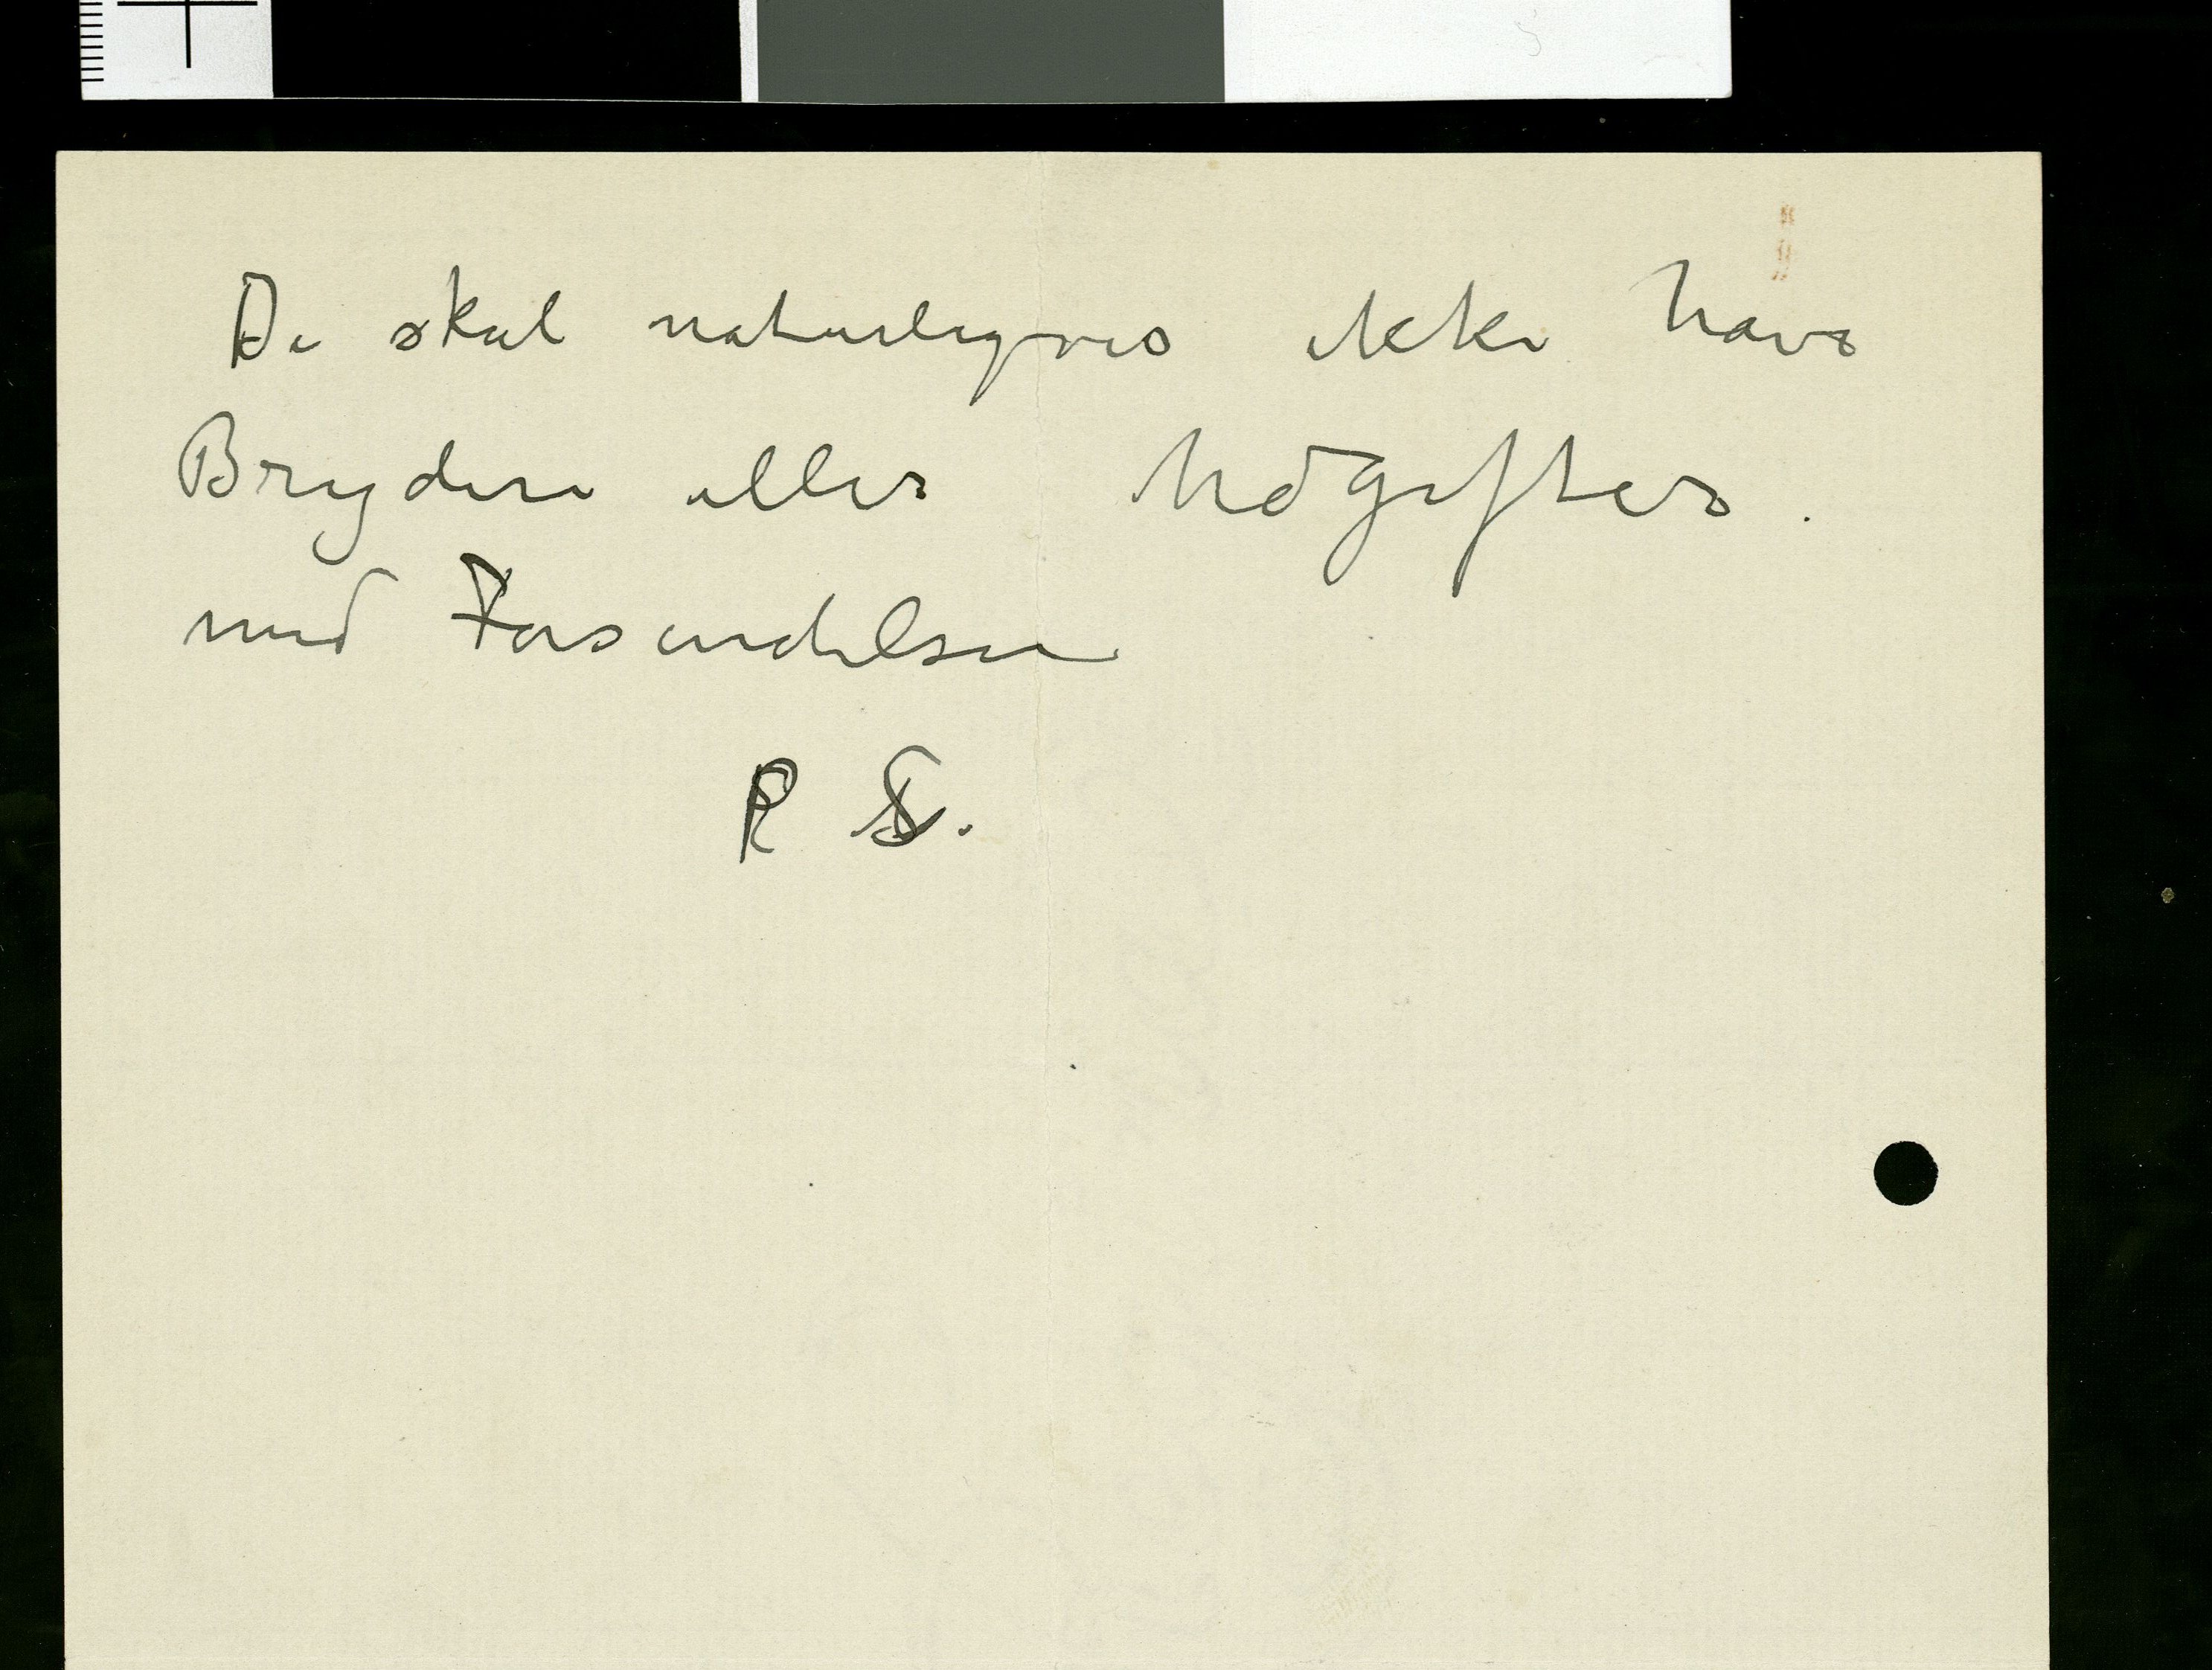 De skal naturligvis ikke have
Bryderi eller Udgifter.
med Forsendelsen
R S.